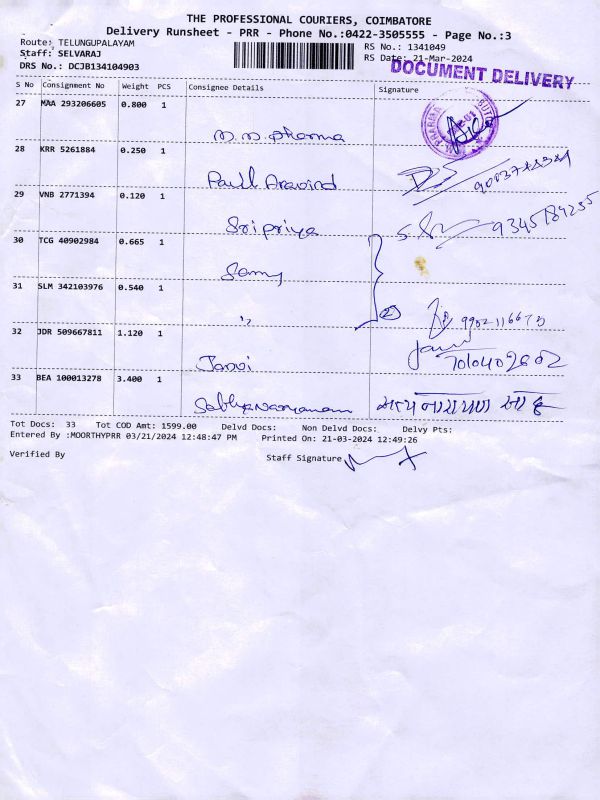 THE PROFESSIONAL COURIERS, COIMBATORE
Delivery Runsheet - PRR - Phone No.:0422-3505555 - Page No.:3
Route: TELUNGUPALAYAM
RS No.: 1341049
Staff: SELVARAJ
RS Date: 21-Mar-2024
DRS No.: DCJB134104903
DOCUMENT DELIVERY
S No Consignment No Weight PCS Consignee Details Signature
27 MAA 293206605 0.800 1
Pharma
28 KRR 5261884 0.250 1
Paul Aravind
29 VNB 2771394 0.120 1
Sripriya 9345784255
30 TCG 40902984 0.665 1
Samy
31 SLM 342103976 0.540 1
" 2
32 JDR 509667811 1.120 1
33 BEA 100013278 3.400 1
Tot Docs: 33 Tot COD Amt: 1599.00 Delvd Docs: Non Delvd Docs: Delvy Pts:
Entered By :MOORTHYPRR 03/21/2024 12:48:47 PM Printed On: 21-03-2024 12:49:26
Verified By Staff Signature